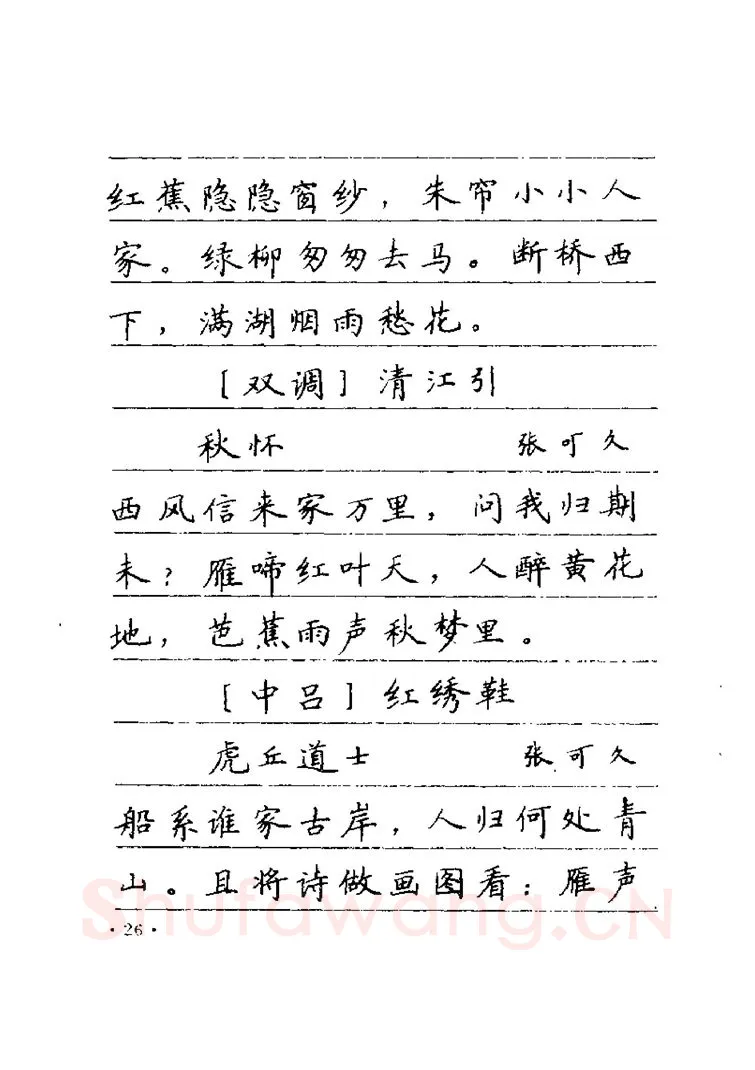 红蕉隐隐窗纱，朱帘小小人
家。绿柳匆匆去马。断桥西
下，满湖烟雨愁花。
［双调］清江引
秋怀 张可久
西风信来家万里，问我归期
未？雁啼红叶天，人醉黄花
地，芭蕉雨声秋梦里。
［中吕］红绣鞋
虎丘道士 张可久
船系谁家古岸，人归何处青
山。且将诗做画图看：雁声
Shufawang.CN
·26·